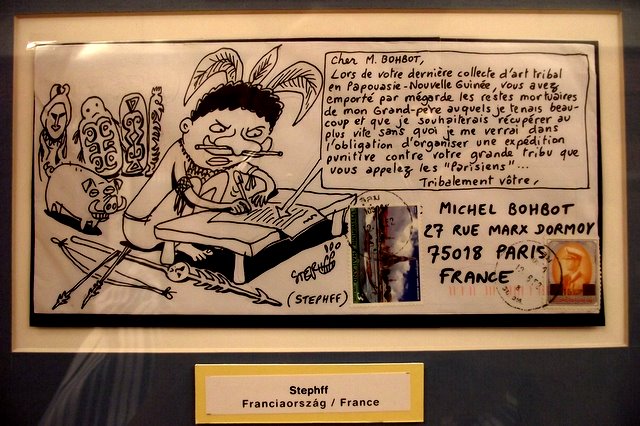 Cher M. BOHBOT,
Lors de votre dernière collecte d'art tribal
en Papouasie-Nouvelle Guinée, vous avez
emporté par mégarde les restes mortuaires
de mon Grand-père auquels je tenais beau-
coup et que je souhaiterais récupérer au
plus vite sans quoi je me verrai dans
l'obligation d'organiser une expédition
punitive contre votre grande tribu que
vous appelez les "Parisiens"...
Tribalement vôtre,
MICHEL BOHBOT
27 RUE MARX DORMOY
75018 PARIS
FRANCE
STEPHFF
(STEPHFF)
Stephff
Franciaország / France